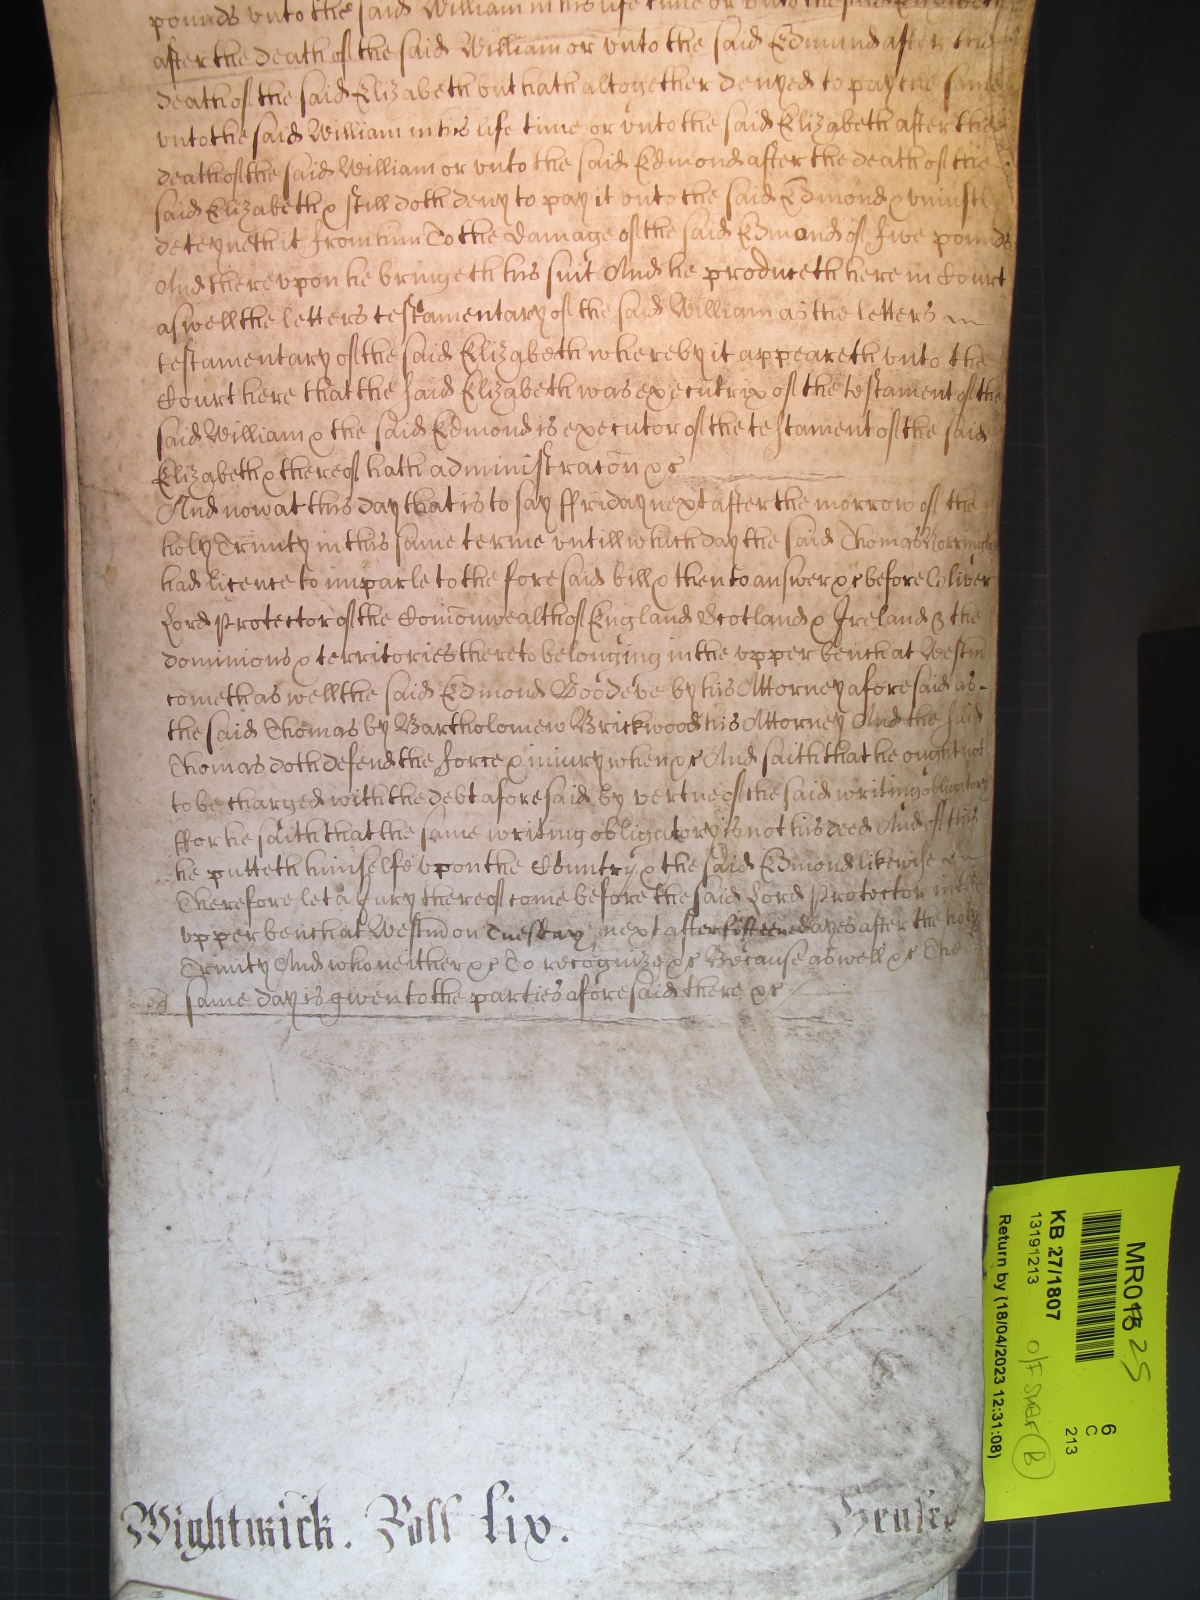 pounds vnto the said William in his life time or vnto the said Elizabeth
after the death of the said William or vnto the said Edmund after the
death of the said Elizabeth but hath altogether denyed to pay the same
vnto the said William in his life time or vnto the said Elizabeth after the
death of the said William or vnto the said Edmond after the death of the
said Elizabeth & still doth deny to pay it vnto the said Edmond & vniustly
deteyneth it from him To the damage of the said Edmond of five pounds
And therevpon he bringeth his suit And he produceth here in Court
aswell the letters testamentary of the said William as the letters
testamentary of the said Elizabeth whereby it appeareth vnto the
Court here that the said Elizabeth was executrix of the testament of the
said William & the said Edmond is executor of the testament of the said
Elizabeth & thereof hath administracōn &c
And now at this day that is to say ffriday next after the morrow of the
holy Trinity in this same terme vntill which day the said Thomas
had licence to imparle to the foresaid bill & then to answer &c before Oliver
Lord Protector of the Comōnwealth of England Scotland & Ireland & the
dominions & territories thereto belonging in the vpper bench at Westm̄
cometh as well the said Edmond Goodeve by his Attorney aforesaid as
the said Thomas by Bartholomew Brickwood his Attorney And the said
Thomas doth defend the force & iniury when &c And saith that he ought not
to be charged with the debt aforesaid by vertue of the said writing obligatory
ffor he saith that the same writing obligatory is not his deed And of this
he putteth himselfe vpon the Countrey & the said Edmond likewise
Therefore let a Jury thereof come before the said Lord Protector in the
vpper bench at Westm̄ on Tuesday next after fifteene dayes after the holy
Trinity And who neither &c To recognize &c Because aswell &c The
same day is given to the parties aforesaid there &c
Wightwick. Roll lix.
MR018 25
6
C
213
KB 27/1807
13191213
O/F Shelf B
Return by (18/04/2023 12:31:08)